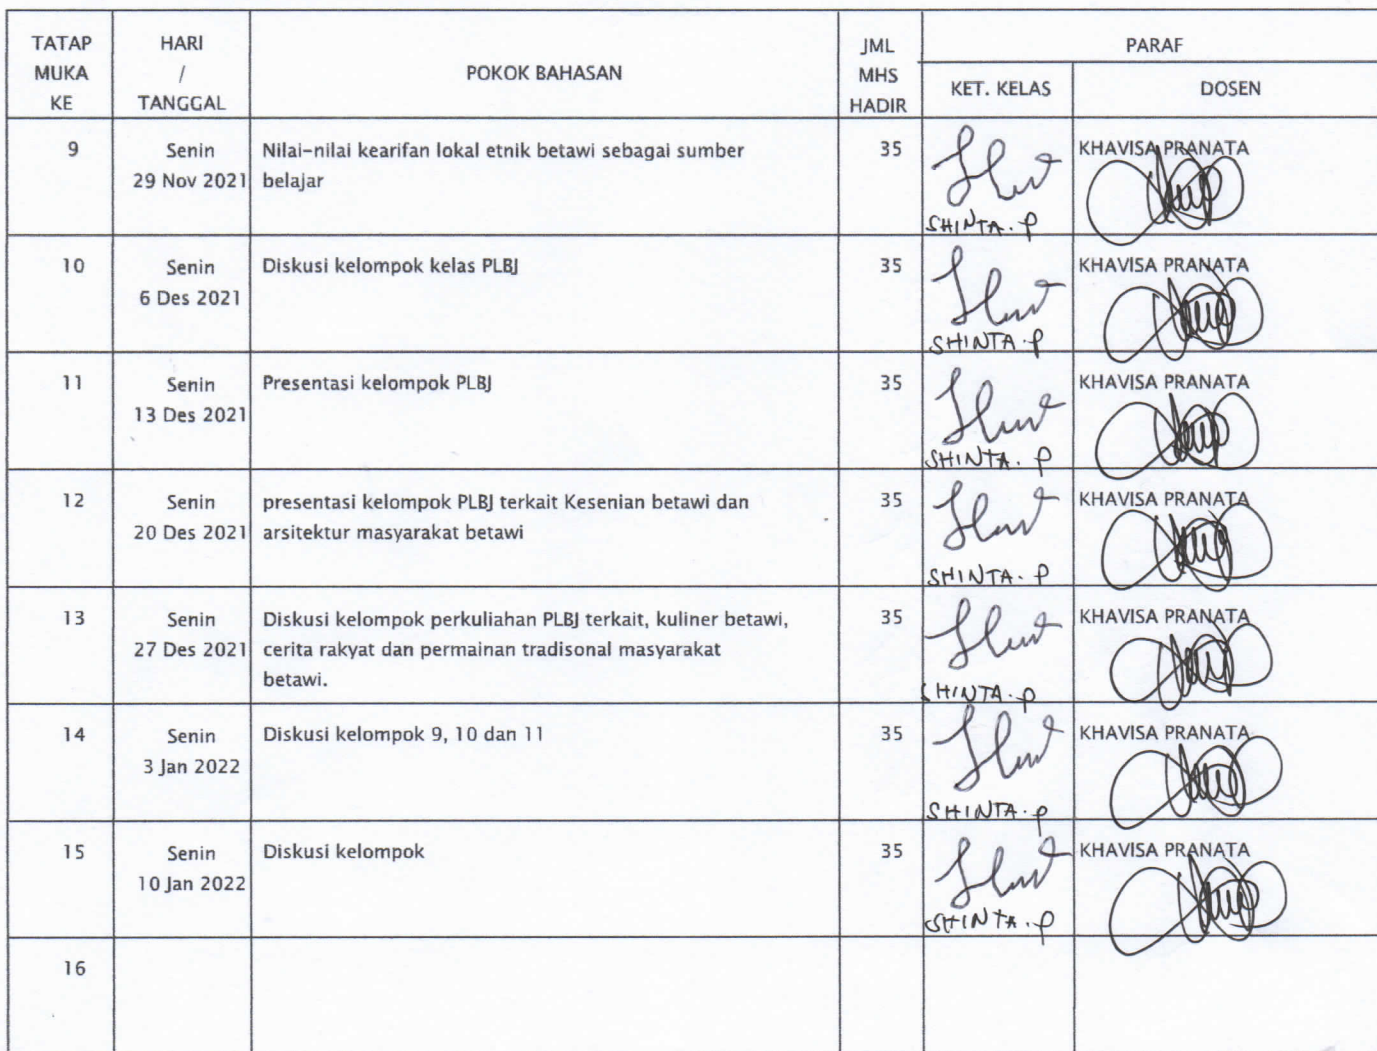 TATAP MUKA KE
HARI / TANGGAL
POKOK BAHASAN
JML MHS HADIR
PARAF
KET. KELAS
DOSEN
9
Senin
29 Nov 2021
Nilai-nilai kearifan lokal etnik betawi sebagai sumber
belajar
35
SHINTA. P
KHAVISA PRANATA
10
Senin
6 Des 2021
Diskusi kelompok kelas PLBJ
35
SHINTA. P
KHAVISA PRANATA
11
Senin
13 Des 2021
Presentasi kelompok PLBJ
35
SHINTA. P
KHAVISA PRANATA
12
Senin
20 Des 2021
presentasi kelompok PLBJ terkait Kesenian betawi dan
arsitektur masyarakat betawi
35
SHINTA. P
KHAVISA PRANATA
13
Senin
27 Des 2021
Diskusi kelompok perkuliahan PLBJ terkait, kuliner betawi,
cerita rakyat dan permainan tradisonal masyarakat
betawi.
35
SHINTA. P
KHAVISA PRANATA
14
Senin
3 Jan 2022
Diskusi kelompok 9, 10 dan 11
35
SHINTA. P
KHAVISA PRANATA
15
Senin
10 Jan 2022
Diskusi kelompok
35
SHINTA. P
KHAVISA PRANATA
16